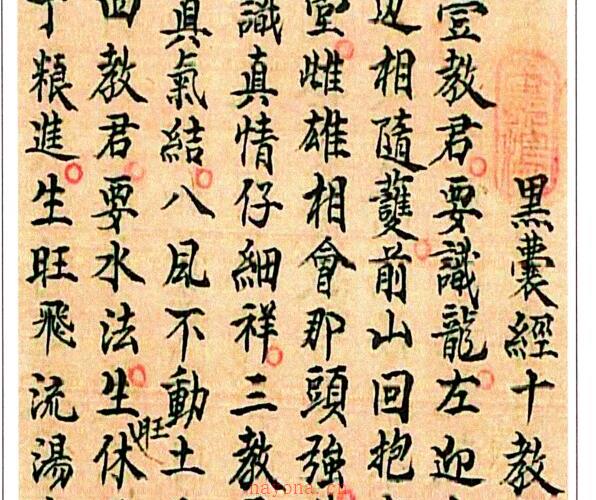 黑囊經十教
教君要識龍左迎
相隨護前山回抱
堂雌雄相會那頭強
識真情仔細祥三教
真氣結八凬不動土
教君要水法生旺休
丁粮進生旺飛流湯
nayona.cn